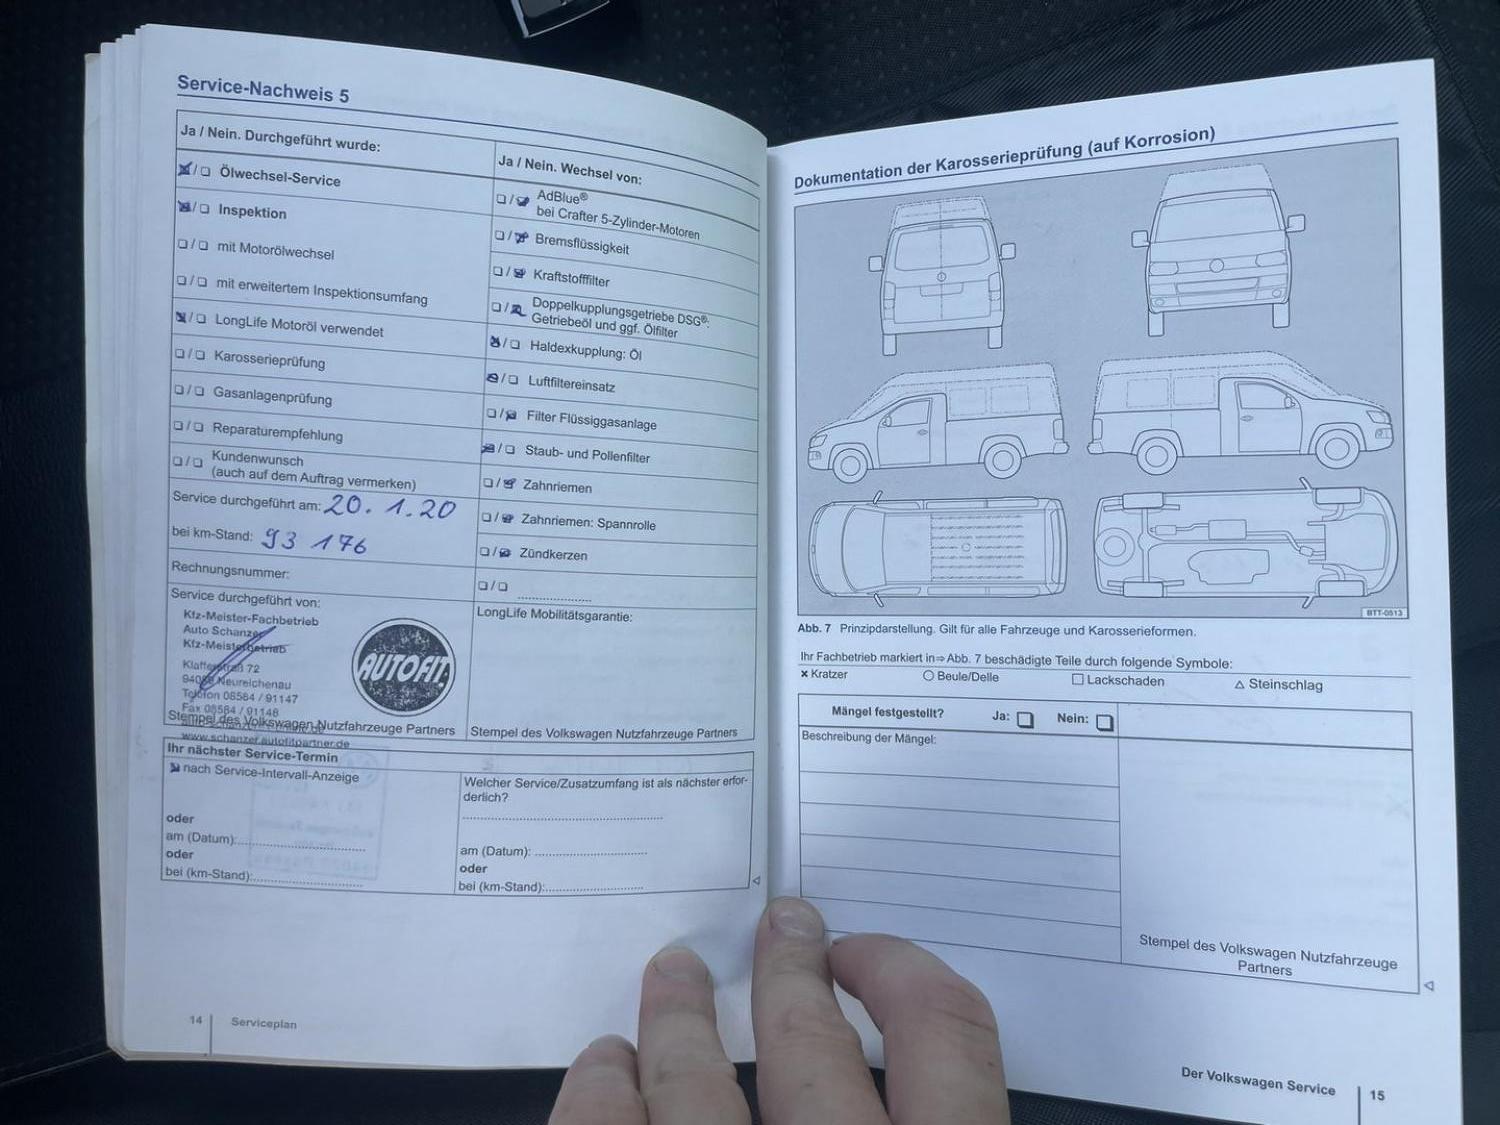 Service-Nachweis 5
Ja / Nein. Durchgeführt wurde:
Ölwechsel-Service
Inspektion
mit Motorölwechsel
mit erweitertem Inspektionsumfang
LongLife Motoröl verwendet
Karosserieprüfung
Gasanlagenprüfung
Reparaturempfehlung
Kundenwunsch
(auch auf dem Auftrag vermerken)
Service durchgeführt am: 20. 1. 20
bei km-Stand: 93 176
Rechnungsnummer:
Service durchgeführt von:
Kfz-Meister-Fachbetrieb
Auto Schanzer
Kfz-Meisterbetrieb
72
Neureichenau
Telefon 08584 / 91147
Fax 08584 / 91148
www.schanzer.autofitpartner.de
AUTOFIT
Stempel des Volkswagen Nutzfahrzeuge Partners
Ja / Nein. Wechsel von:
AdBlue®
bei Crafter 5-Zylinder-Motoren
Bremsflüssigkeit
Kraftstofffilter
Doppelkupplungsgetriebe DSG®:
Getriebeöl und ggf. Ölfilter
Haldexkupplung: Öl
Luftfiltereinsatz
Filter Flüssiggasanlage
Staub- und Pollenfilter
Zahnriemen
Zahnriemen: Spannrolle
Zündkerzen
LongLife Mobilitätsgarantie:
Stempel des Volkswagen Nutzfahrzeuge Partners
Ihr nächster Service-Termin
nach Service-Intervall-Anzeige
oder
am (Datum):
oder
bei (km-Stand):
Welcher Service/Zusatzumfang ist als nächster erfor-
derlich?
am (Datum):
oder
bei (km-Stand):
14 Serviceplan
Dokumentation der Karosserieprüfung (auf Korrosion)
BTT-0513
Abb. 7 Prinzipdarstellung. Gilt für alle Fahrzeuge und Karosserieformen.
Ihr Fachbetrieb markiert in ⇒ Abb. 7 beschädigte Teile durch folgende Symbole:
× Kratzer ○ Beule/Delle □ Lackschaden △ Steinschlag
Mängel festgestellt? Ja: Nein:
Beschreibung der Mängel:
Stempel des Volkswagen Nutzfahrzeuge
Partners
Der Volkswagen Service 15